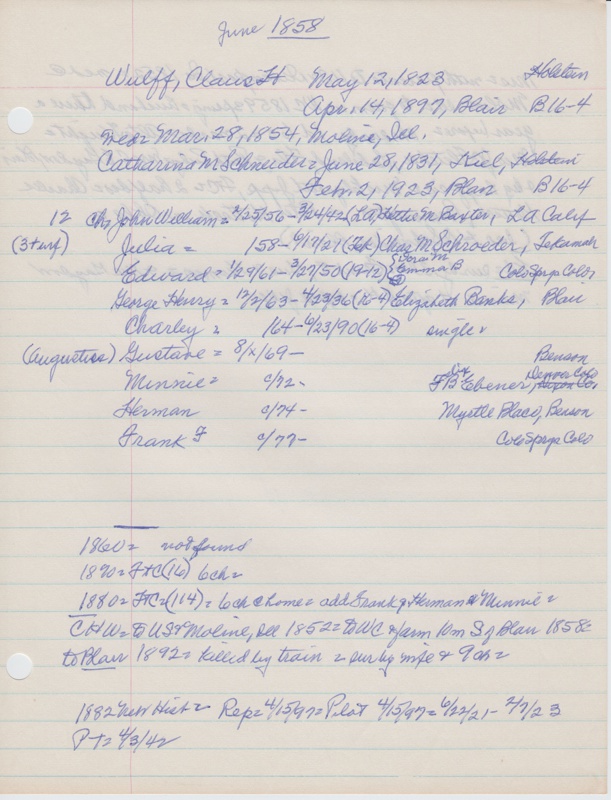 June 1858
Wulff, Claus H May 12, 1823 Holstein
Apr. 14, 1897, Blair B16-4
Mar. 28, 1854, Moline, Ill.
Catharina M Schneider = June 28, 1831, Kiel, Holstein
Feb. 2, 1923, Blair B16-4
12 ch, John William = 2/25/56 - 3/24/42 (LA) Hettie M Baxter, LA Calif
(3+inf) Julia = 158 - 6/17/21 (Tek) Chas M Schroeder, Tekamah
Edward = 1/29/61 - 3/27/50 (19-12) {Dora M {Emma B ColoSprgs Colo
George Henry = 12/2/63 - 4/23/36 (16-4) Elizabeth Banks, Blair
Charley = 164 - 6/23/90 (16-4) single
(Augustus) Gustave = 8/x/69 - Benson
Minnie = c/72 - F B Ebener, Denver Colo
Herman c/74 - Myrtle Placo, Benson
Frank F c/77 - ColoSprgs Colo
1860 = not found
1870 = F+C (16) 6ch =
1880 = F+C = (114) = 6ch @ home = add Frank & Herman & Minnie =
CHW = to US & Moline, Ill 1852 = to WC & farm 10m S of Blair 1858 =
to Blair 1892 = killed by train = sur by wife & 9ch =
1882 New Hist = Rep = 4/15/97 = Pilot 4/15/97 = 6/22/21 - 2/7/23
P-T = 4/3/42